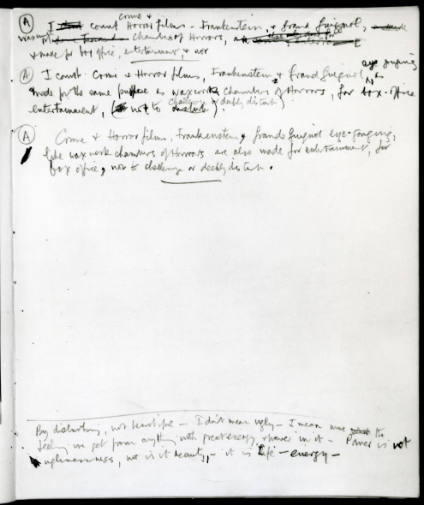 Crime &
(A) I count Horror films - Frankenstein, & Grand Guignol,
waxwork Chambers of Horrors,
& made for box office, entertainment, & not
eye gouging
(A) I count Crime & Horror films, Frankenstein & Grand Guignol
made for the same purpose as waxwork chambers of Horrors, for box-office
challenge or deeply disturb
entertainment, (not to disturb).
(A) Crime & Horror films, Frankenstein, & Grande Guignol eye-gouging,
like waxwork chambers of Horrors are also made for entertainment, for
box office, not to challenge or deeply disturb.
By disturbing, not beautiful - I don't mean ugly - I mean more the
feeling we get from anything with great energy, & power in it - Power is not
ugliness, nor is it beauty, - it is life - energy -